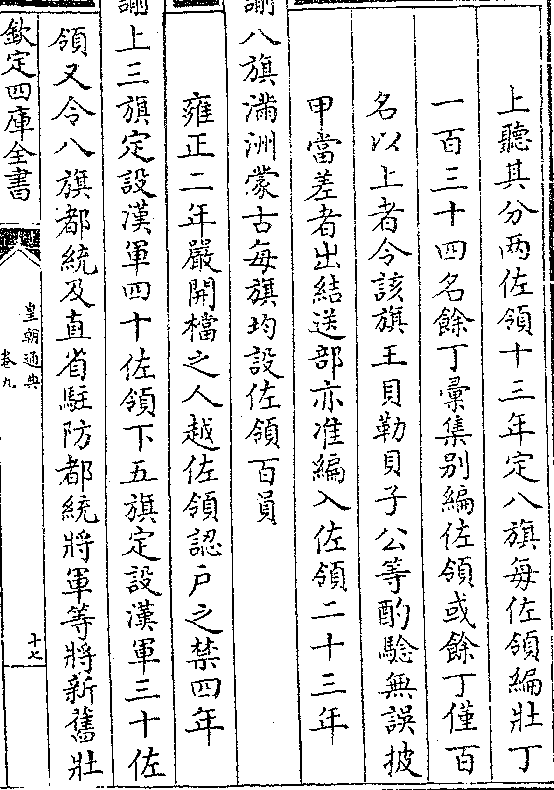 上聽其分兩佐領十三年定八旗每佐領編壯丁
一百三十四名餘丁彙集别編佐領或餘丁僅百
名以上者令該旗王貝勒貝子公等酌驗無誤披
甲當差者出結送部亦准編入佐領二十三年
諭八旗滿洲蒙古每旗均設佐領百員
雍正二年嚴開檔之人越佐領認户之禁四年
諭上三旗定設漢軍四十佐領下五旗定設漢軍三十佐
領又令八旗都統及直省駐防都統將軍等將新舊壯
欽定四庫全書
皇朝通典
卷九
十七